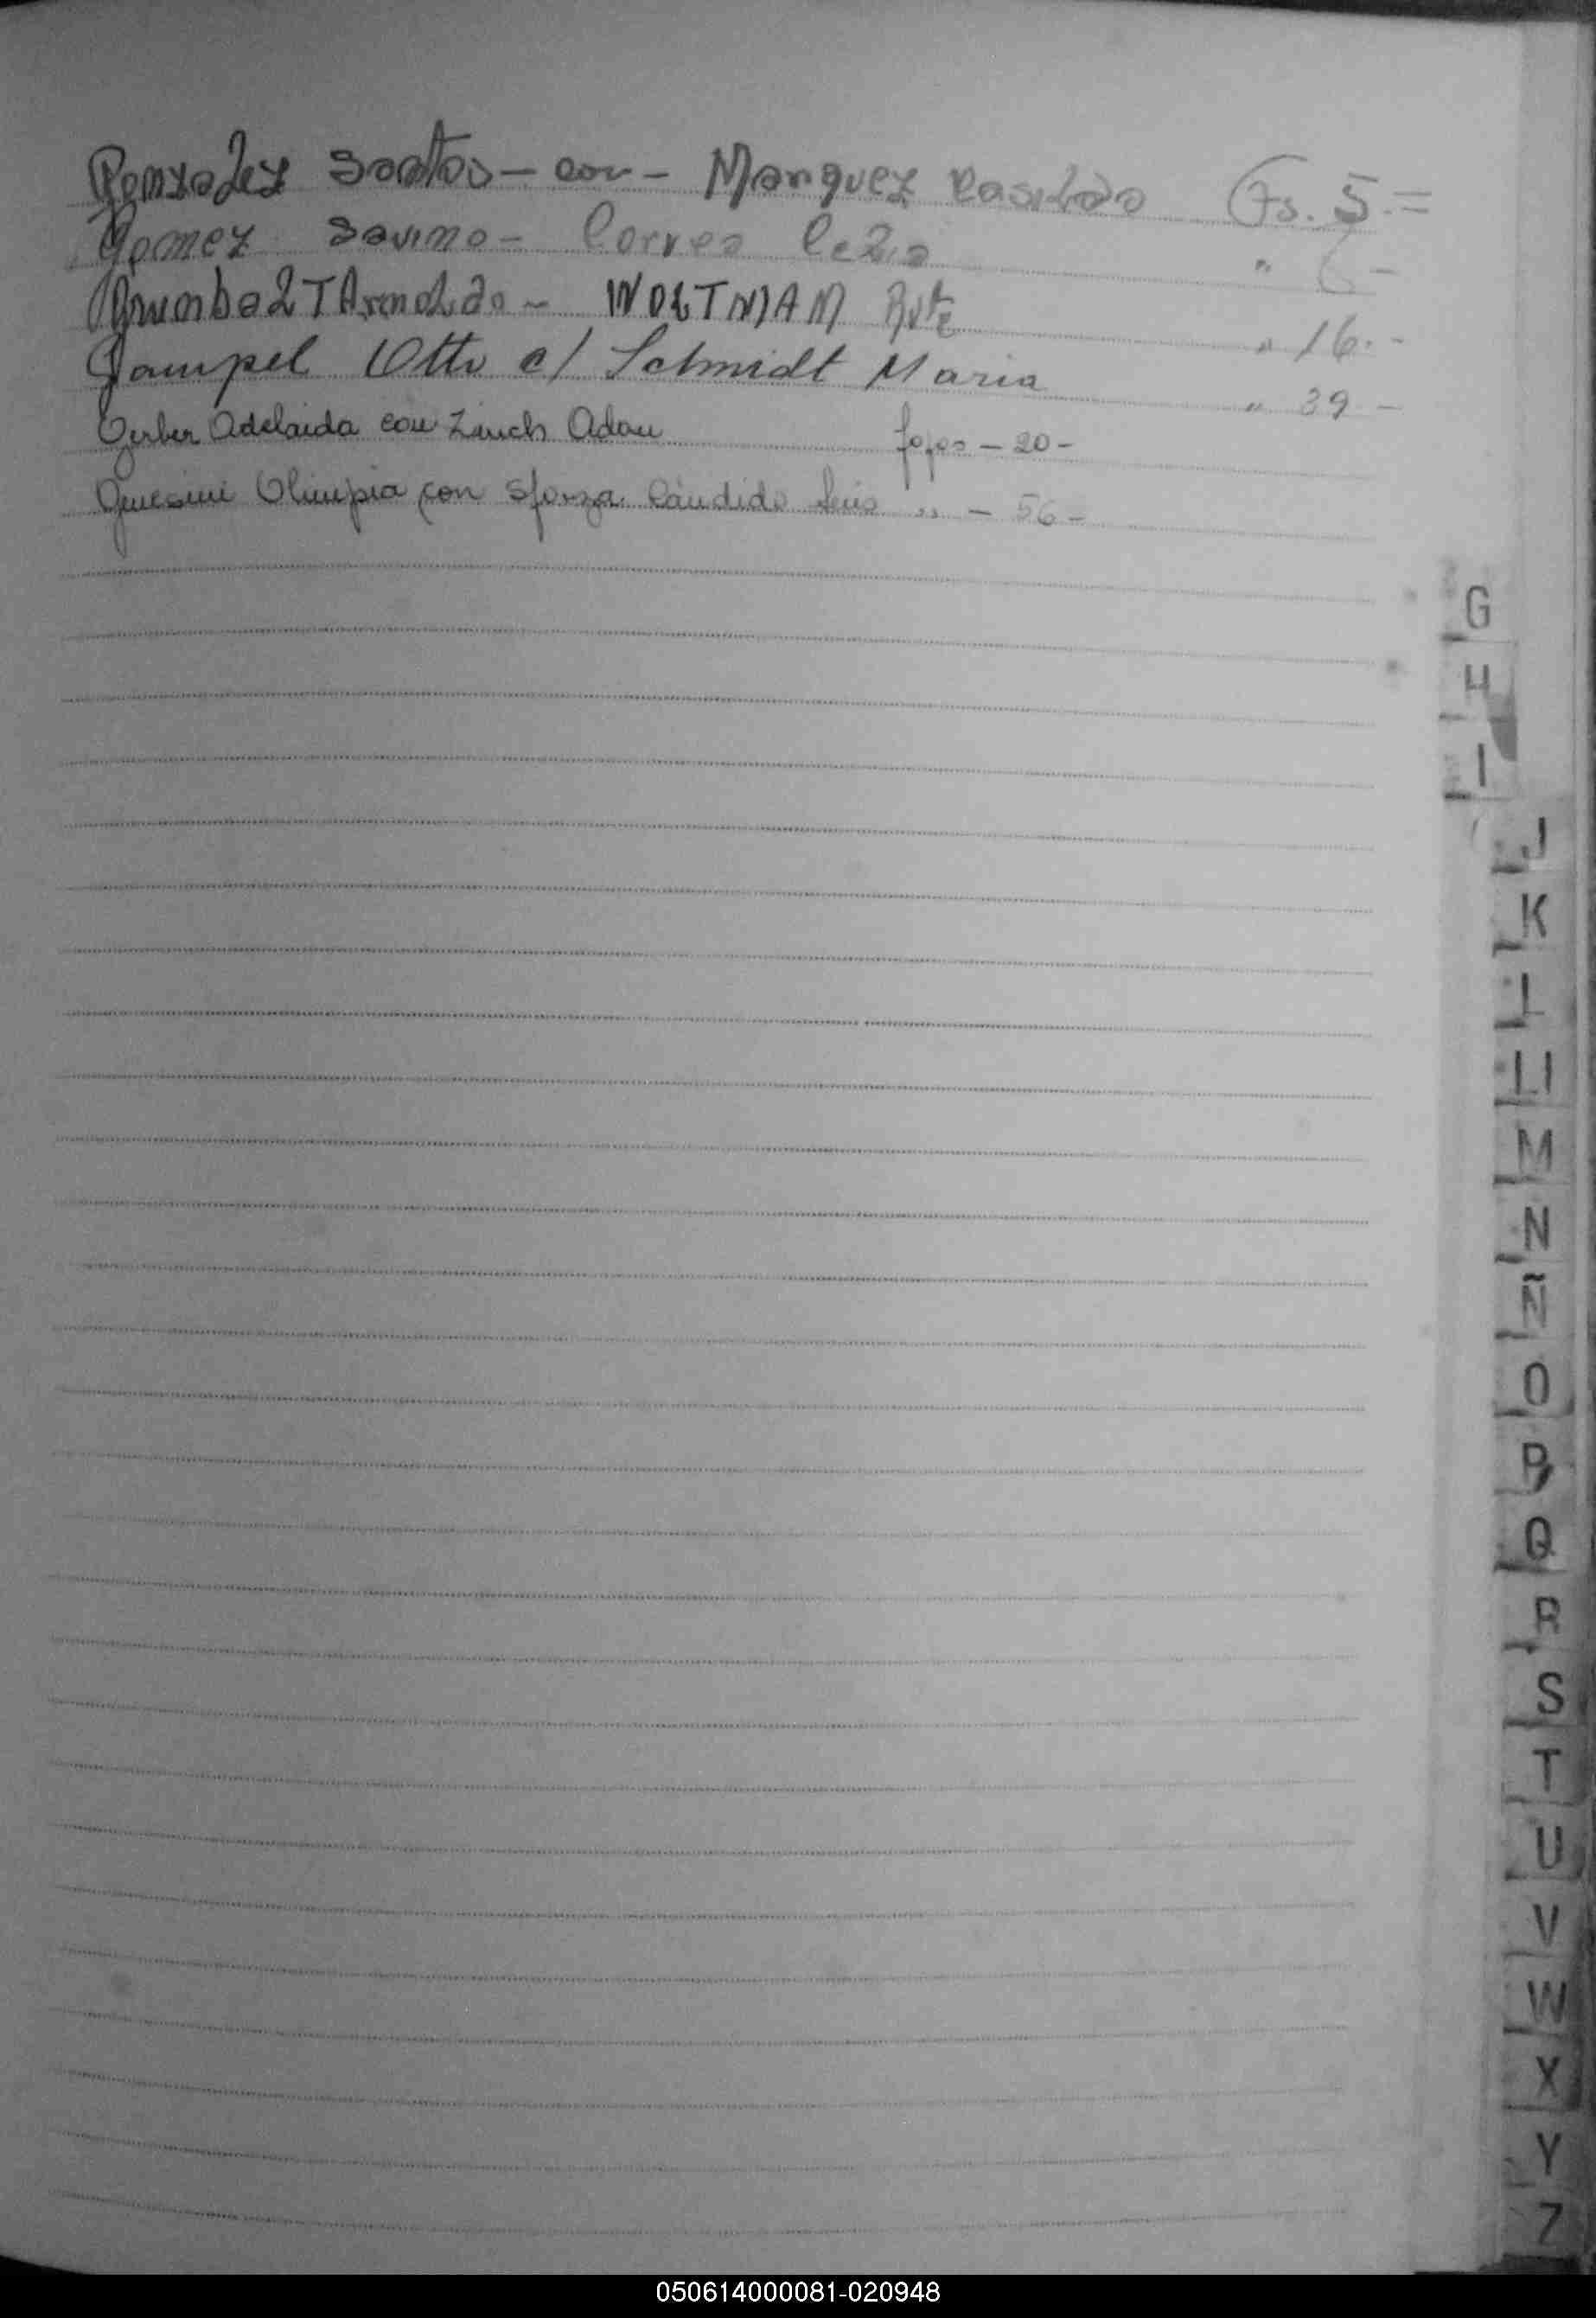 Gonzalez Santos - con - Marquez Casildo Fs. 5.=
Gomez Savino - Correa Celia " 6 -
Grunbalt Arnoldo - WOLTMAM Rut " 16.-
Gampel Otto c/ Schmidt Maria " 39 -
Gerber Adelaida con Zinch Adan fojas - 20 -
Olimpia con Sforza Cándido Luis " - 56 -
G
H
I
J
K
L
Ll
M
N
Ñ
O
P
Q
R
S
T
U
V
W
X
Y
Z
050614000081-020948